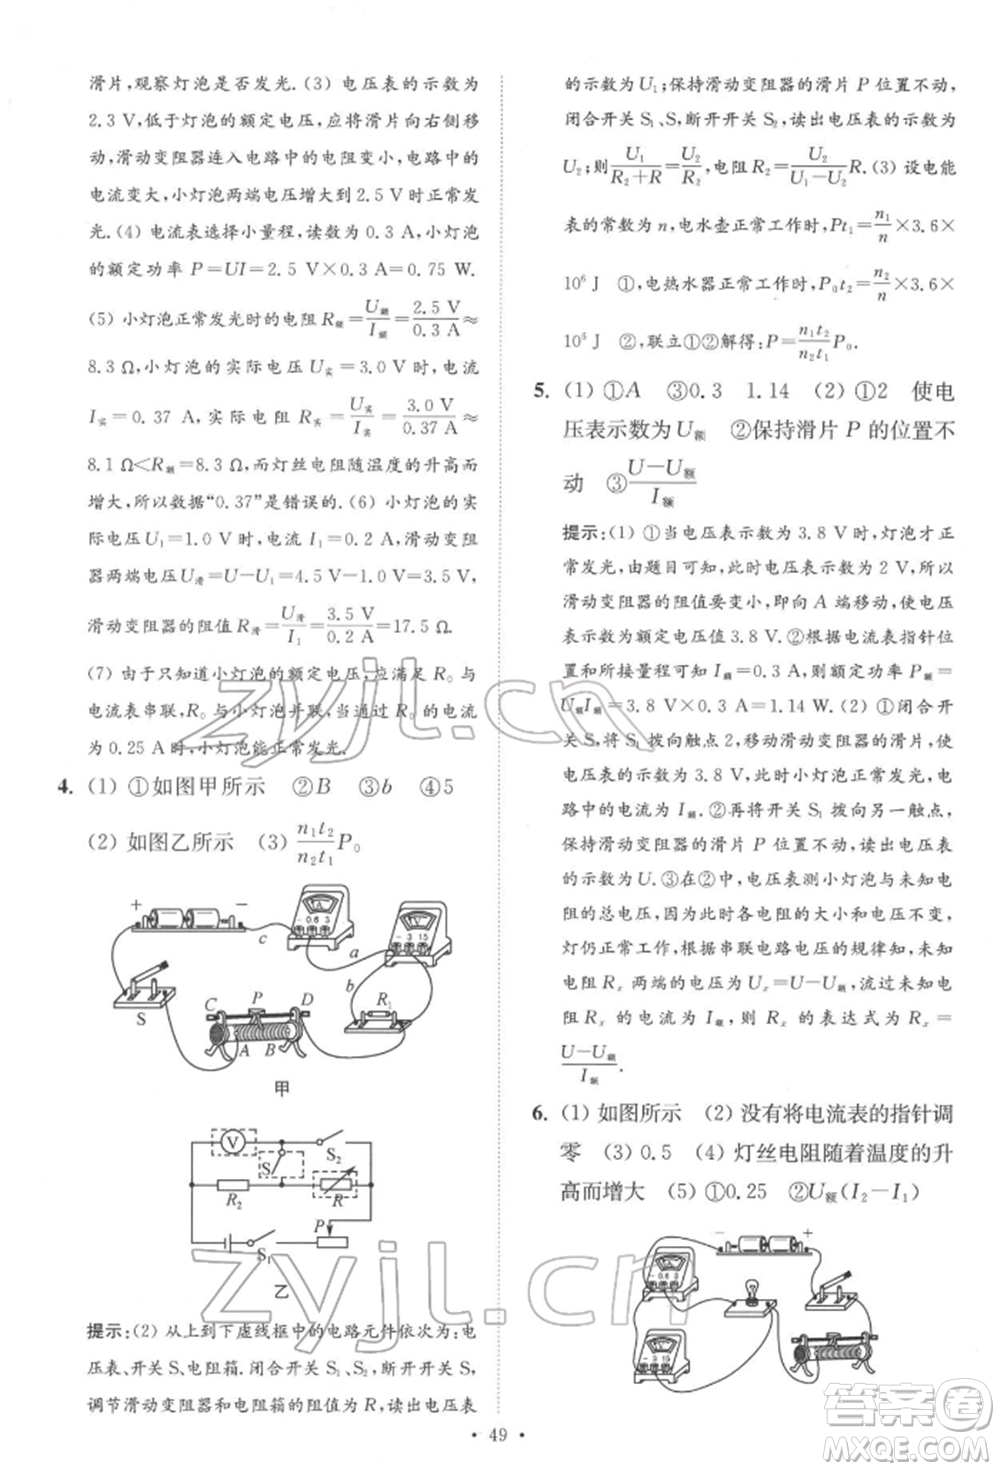 滑片,观察灯泡是否发光.(3) 电压表的示数为
2.3 V,小于灯泡的额定电压,应将滑片向右侧移
动,滑动变阻器连入电路中的电阻变小,电路中的
电流变大,小灯泡两端电压增大到 2.5 V时正常发
光.(4) 电流表选择小量程,读数为 0.3 A,小灯泡
的额定功率 P=UI=2.5 V×0.3 A=0.75 W.
(5) 小灯泡正常发光时的电阻 R额=U额/I额=2.5 V/0.3 A≈
8.3 Ω,实际电压为 U实=3.0 V 时,电流
I实=0.37 A,实际电阻 R实=U实/I实=3.0 V/0.37 A≈
8.1 Ω<R额=8.3 Ω,而灯丝电阻随温度的升高而
增大,所以数据“0.37”是错误的.(6) 小灯泡的实
际电压U1=1.0 V时,电流 I1=0.2 A,滑动变阻
器两端电压U滑=U-U1=4.5 V-1.0 V=3.5 V,
滑动变阻器的阻值 R滑=U滑/I1=3.5 V/0.2 A=17.5 Ω.
(7) 由于只知道小灯泡的额定电压,应满足 R0 与
电流表串联,R0 与小灯泡并联,当通过 R0 的电流
为 0.25 A 时,小灯泡能正常发光.
4. (1) ①如图甲所示 ②B ③b ④5
(2) 如图乙所示 (3) n1t2/n2t1 P0
+ -
A
- 0.6 3
V
- 3 15
c
a
b
S
C P D
A B
R1
甲
V
S2
S
R2
R
P
S1
乙
提示:(2) 从上到下虚线框中的电路元件依次为:电
压表、开关 S、电阻箱.闭合开关 S1、S2,断开开关 S,
调节滑动变阻器和电阻箱的阻值为R,读出电压表
的示数为 U1;保持滑动变阻器的滑片 P 位置不动,
闭合开关 S1、S,断开开关 S2,读出电压表的示数为
U2;则U1/(R2+R)=U2/R2,电阻 R2=U2/(U1-U2)R.(3) 设电能
表的常数为 n,电水壶正常工作时,Pt1=n1/n×3.6×
10⁶ J ①,电热水器正常工作时,P0t2=n2/n×3.6×
10⁶ J ②,联立①②解得:P=n1t2/n2t1 P0.
5. (1) ①A ③0.3 1.14 (2) ①2 使电
压表示数为U额 ②保持滑片 P 的位置不
动 ③(U-U额)/I额
提示:(1) ①当电压表示数为 3.8 V时,灯泡才正
常发光,由题目可知,此时电压表示数为 2 V,所以
滑动变阻器的阻值要变小,即向 A 端移动,使电压
表示数为额定电压值 3.8 V.②根据电流表指针位
置和所接量程可知 I额=0.3 A,则额定功率 P额=
U额I额=3.8 V×0.3 A=1.14 W.(2) ①闭合开
关,将 S1 拨向触点 2,移动滑动变阻器的滑片,使
电压表示数为 U额,此时小灯泡正常发光,此时电
路中的电流为 I额.②再将开关 S1 拨向另一触点,
保持滑动变阻器的滑片 P 位置不动,读出电压表
的示数为 U.③在②中,电压表测小灯泡与未知电
阻的总电压,由于各电阻的大小和电压不变,
灯仍正常工作,根据串联电路电压的规律知,未知
电阻 Rx 两端的电压为 Ux=U-U额,通过未知电
阻 Rx 的电流为 I额,则 Rx 的表达式为 Rx=
(U-U额)/I额.
6. (1) 如图所示 (2) 没有将电流表的指针调
零 (3) 0.5 (4) 灯丝电阻随着温度的升
高而增大 (5) ①0.25 ②U额(I2-I1)
- +
A
- 0.6 3
V
- 3 15
· 49 ·
zyjl.cn
zyjl.cn
答案圈
MXQE.COM